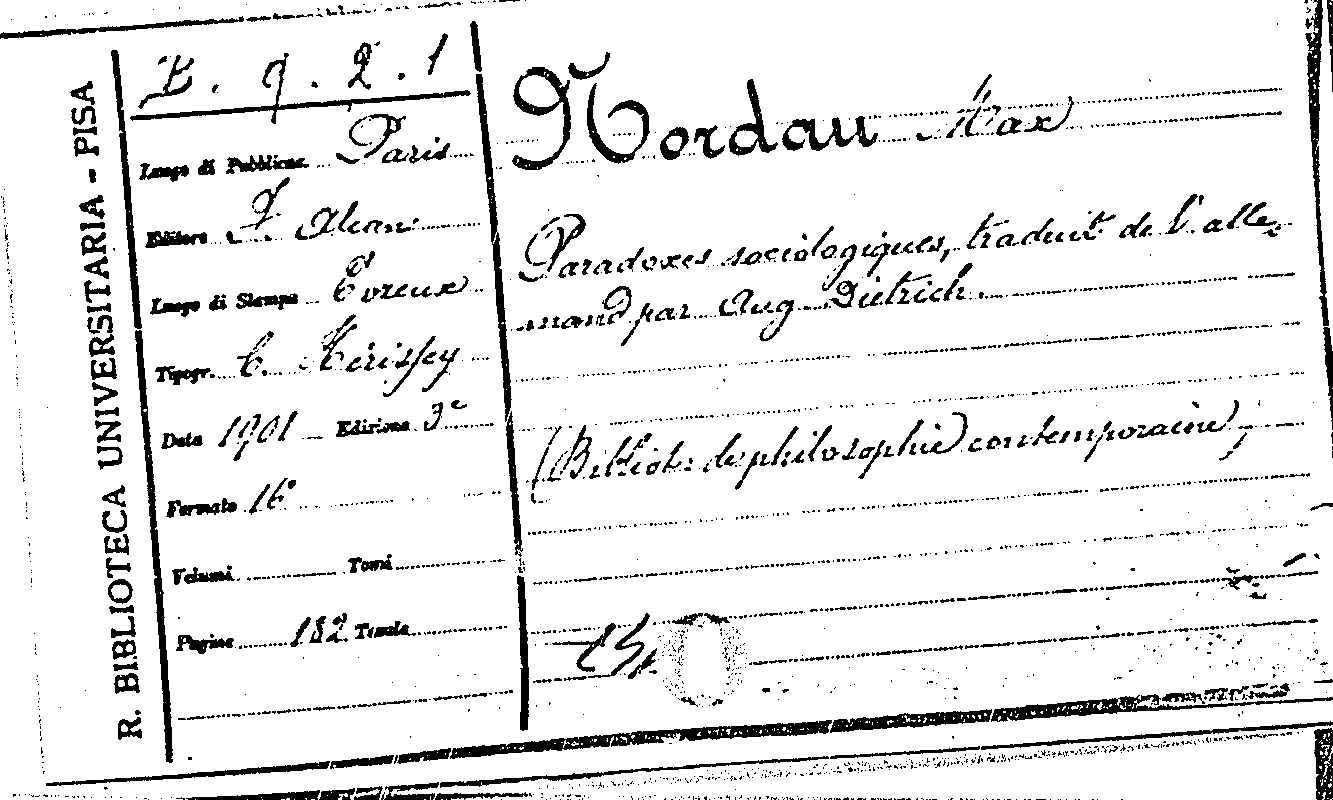 R. BIBLIOTECA UNIVERSITARIA - PISA
B. 9. 2. 1
Luogo di Pubblicaz. Paris
Editore F. Alcan
Luogo di Stampa Evreux
Tipogr. C. Hérissey
Data 1901 Edizione 3e
Formato 16°
Volumi Tomi
Pagine 182 Tavole
Nordau Max
Paradoxes sociologiques, traduit de l'alle-
mand par Aug Dietrich.
(Bibliot. de philosophie contemporaine)